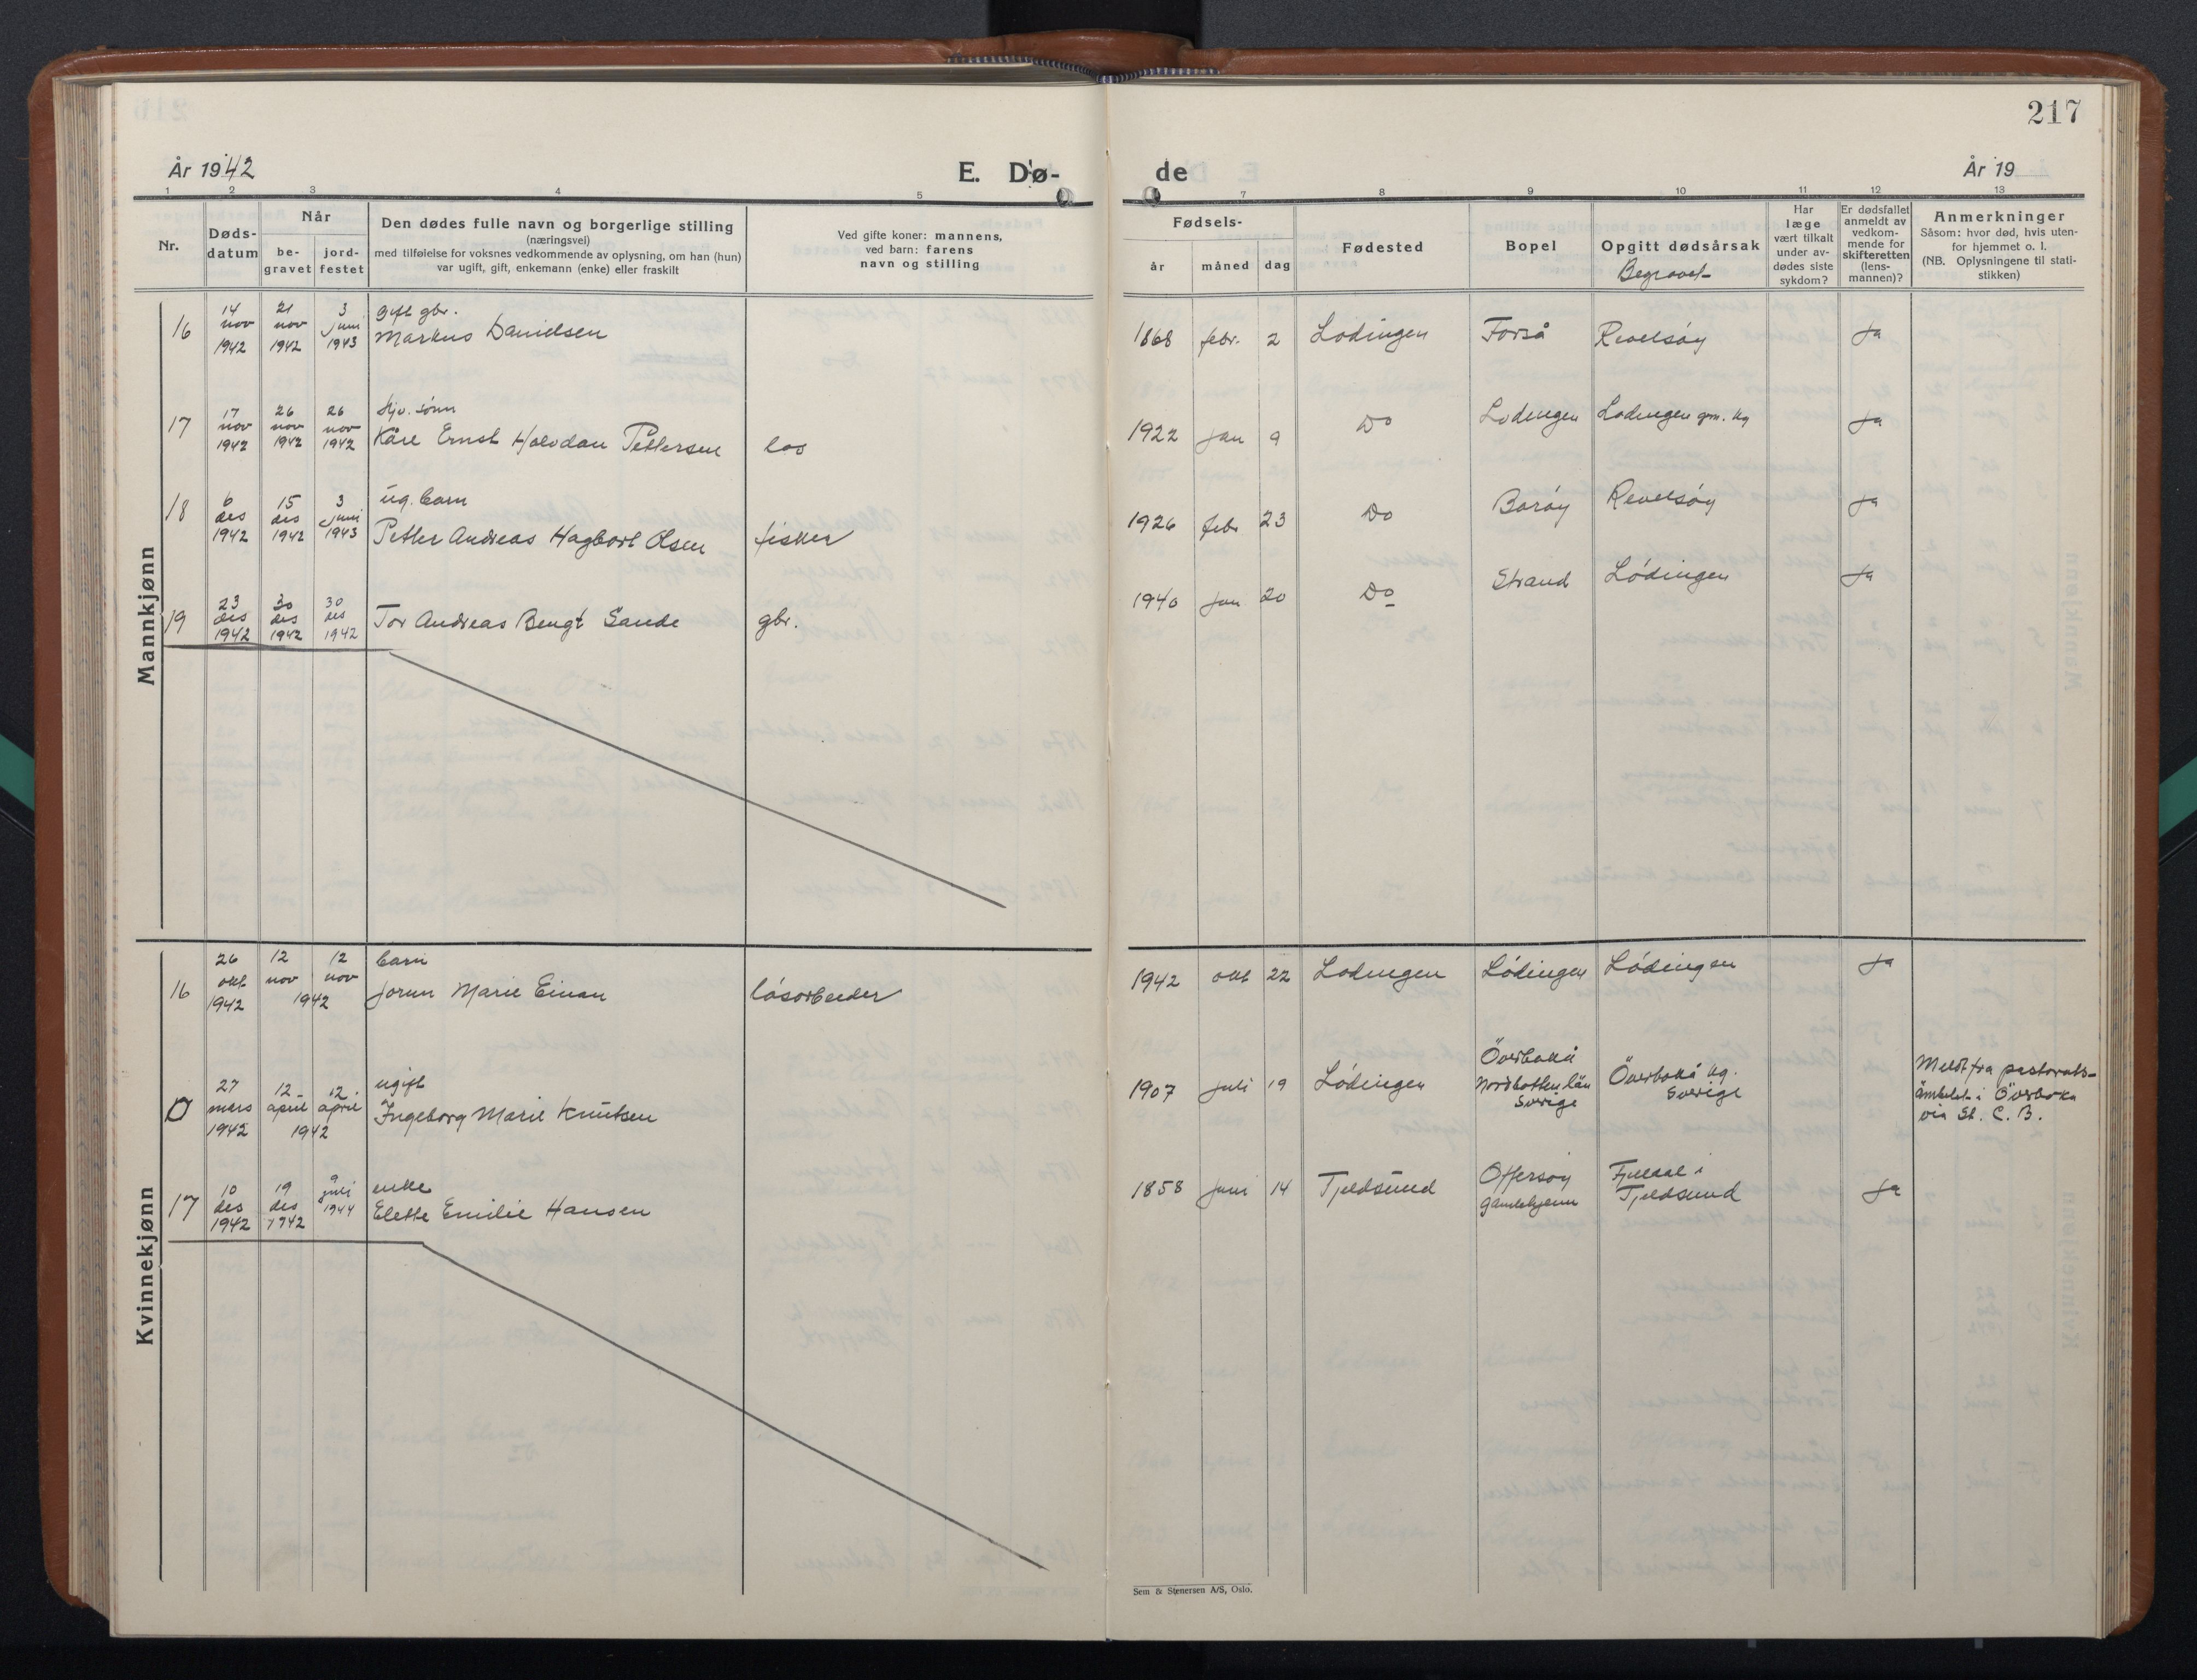 217
År 1942
E. Dø-
de
År 19
1 2 3 4 5
7 8 9 10 11 12 13
Nr.
Døds-
datum
Når
be-
gravet
jord-
festet
Den dødes fulle navn og borgerlige stilling
(næringsvei)
med tilføielse for voksnes vedkommende av oplysning, om han (hun)
var ugift, gift, enkemann (enke) eller fraskilt
Ved gifte koner: mannens,
ved barn: farens
navn og stilling
Fødsels-
år måned dag
Fødested
Bopel
Opgitt dødsårsak
Begravet
Har
læge
vært tilkalt
under av-
dødes siste
sykdom?
Er dødsfallet
anmeldt av
vedkom-
mende for
skifteretten
(lens-
mannen)?
Anmerkninger
Såsom: hvor død, hvis uten-
for hjemmet o. l.
(NB. Oplysningene til stati-
stikken)
Mannkjønn
16
14
nov
1942
21
nov
1942
3
juni
1943
gift gbr.
Markus Danielsen
1868 febr. 2 Lødingen Forså Revelsøy Ja
17
17
nov
1942
26
nov
1942
26
nov
1942
Hjv. sønn
Kåre Ernst Halvdan Pettersen
los
1922 jan 9 Do Lødingen Lødingen gm. kg Ja
18
6
des
1942
15
des
1942
3
juni
1943
ug. barn
Petter Andreas Hagbart Olsen
fisker
1926 febr 23 Do Barøy Revelsøy Ja
19
23
des
1942
30
des
1942
30
des
1942
Tor Andreas Bengt Sande
gbr.
1940 jan 20 Do Strand Lødingen Ja
Kvinnekjønn
16
26
okt
1942
12
nov
12
nov
1942
barn
Jorun Marie Einan
løsarbeider
1942 okt 22 Lødingen Lødingen Lødingen Ja
0
27
mars
1942
12
april
12
april
1942
ugift
Ingeborg Marie Knutsen
1907 juli 19 Lødingen
Överkalix
Nordbotten län
Sverige
kg.
Sverige
Meldt fra pastorats-
ämbetet i
via St. C. B.
17
10
des
1942
19
des
1942
9
juli
1944
enke
Elette Emilie Hansen
1858 juni 14 Tjeldsund
Offersøy
gamlehjem
Fjeldal i
Tjeldsund
Ja
Sem & Stenersen A/S, Oslo.